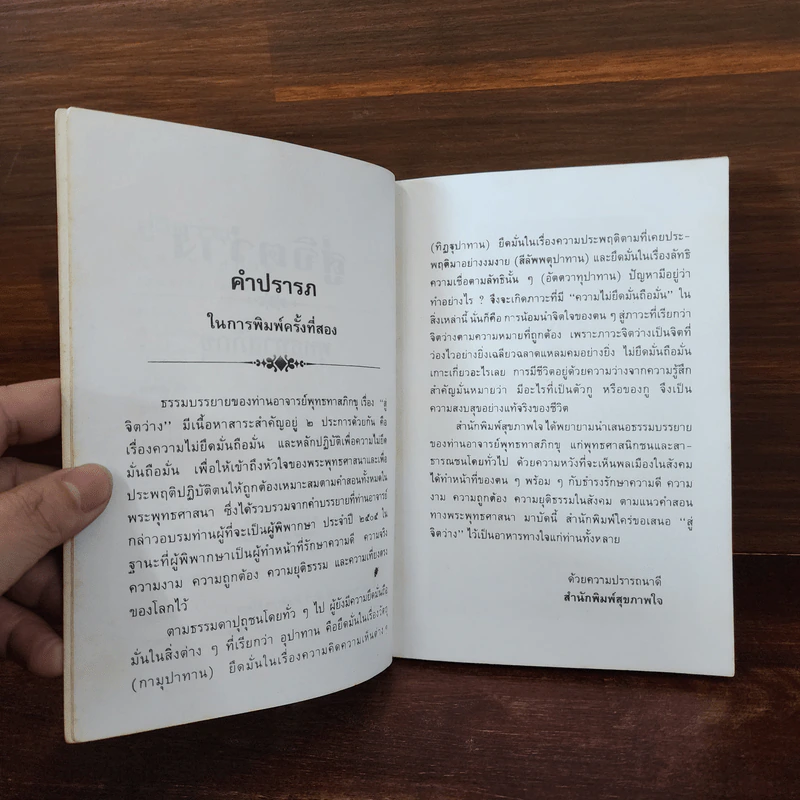 คำปรารภ
ในการพิมพ์ครั้งที่สอง
ธรรมบรรยายของท่านอาจารย์พุทธทาสภิกขุ เรื่อง "สู่
จิตว่าง" มีเนื้อหาสาระสำคัญอยู่ ๒ ประการด้วยกัน คือ
เรื่องความไม่ยึดมั่นถือมั่น และหลักปฏิบัติเพื่อความไม่ยึด
มั่นถือมั่น เพื่อให้เข้าถึงหัวใจของพระพุทธศาสนาและเพื่อ
ประพฤติปฏิบัติตนให้ถูกต้องเหมาะสมตามคำสอนทั้งหมดใน
พระพุทธศาสนา ซึ่งได้รวบรวมจากคำบรรยายที่ท่านอาจารย์
กล่าวอบรมท่านผู้ที่จะเป็นผู้พิพากษา ประจำปี ๒๕๐๔ ใน
ฐานะที่ผู้พิพากษาเป็นผู้ทำหน้าที่รักษาความดี ความจริง
ความงาม ความถูกต้อง ความยุติธรรม และความเที่ยงตรง
ของโลกไว้
ตามธรรมดาปุถุชนโดยทั่ว ๆ ไป ผู้ยังมีความยึดมั่นถือ
มั่นในสิ่งต่าง ๆ ที่เรียกว่า อุปาทาน คือยึดมั่นในเรื่องวัตถุ
(กามุปาทาน) ยึดมั่นในเรื่องความคิดความเห็นต่าง ๆ
(ทิฏฐุปาทาน) ยึดมั่นในเรื่องความประพฤติตามที่เคยประ-
พฤติมาอย่างงมงาย (สีลัพพตุปาทาน) และยึดมั่นในเรื่องลัทธิ
ความเชื่อตามลัทธินั้น ๆ (อัตตวาทุปาทาน) ปัญหามีอยู่ว่า
ทำอย่างไร ? จึงจะเกิดภาวะที่มี "ความไม่ยึดมั่นถือมั่น" ใน
สิ่งเหล่านี้ นั่นก็คือ การน้อมนำจิตใจของตน ๆ สู่ภาวะที่เรียกว่า
จิตว่างตามความหมายที่ถูกต้อง เพราะภาวะจิตว่างเป็นจิตที่
ว่องไวอย่างยิ่งเฉลียวฉลาดแหลมคมอย่างยิ่ง ไม่ยึดมั่นถือมั่น
เกาะเกี่ยวอะไรเลย การมีชีวิตอยู่ด้วยความว่างจากความรู้สึก
สำคัญมั่นหมายว่า มีอะไรที่เป็นตัวกู หรือของกู จึงเป็น
ความสงบสุขอย่างแท้จริงของชีวิต
สำนักพิมพ์สุขภาพใจ ได้พยายามนำเสนอธรรมบรรยาย
ของท่านอาจารย์พุทธทาสภิกขุ แก่พุทธศาสนิกชนและสา-
ธารณชนโดยทั่วไป ด้วยความหวังที่จะเห็นพลเมืองในสังคม
ได้ทำหน้าที่ของตน ๆ พร้อม ๆ กับธำรงรักษาความดี ความ
งาม ความถูกต้อง ความยุติธรรมในสังคม ตามแนวคำสอน
ทางพระพุทธศาสนา มาบัดนี้ สำนักพิมพ์ใคร่ขอเสนอ "สู่
จิตว่าง" ไว้เป็นอาหารทางใจแก่ท่านทั้งหลาย
ด้วยความปรารถนาดี
สำนักพิมพ์สุขภาพใจ